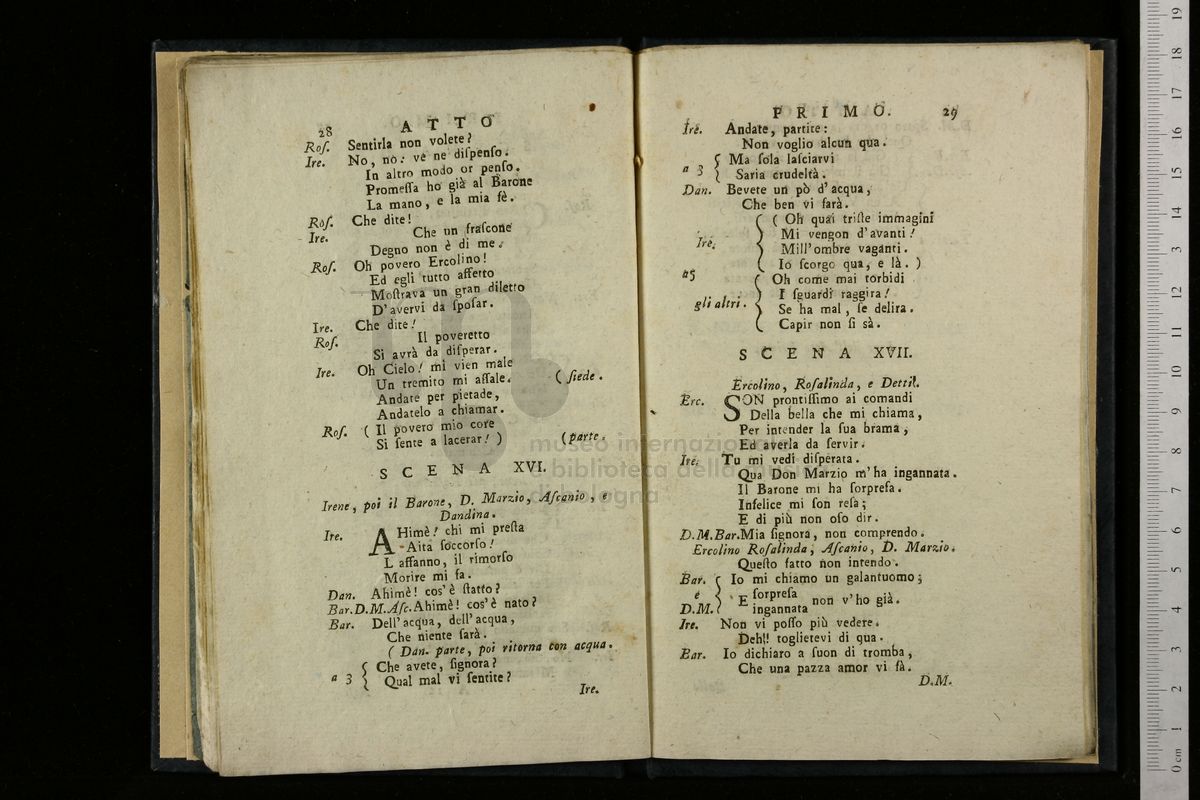 28 ATTO
Roſ. Sentirla non volete?
Ire. No, no: ve ne diſpenſo.
In altro modo or penſo.
Promeſſa ho già al Barone
La mano, e la mia fè.
Roſ. Che dite!
Ire. Che un fraſcone
Degno non è di me.
Roſ. Oh povero Ercolino!
Ed egli tutto affetto
Moſtrava un gran diletto
D'avervi da ſpoſar.
Ire. Che dite!
Roſ. Il poveretto
Si avrà da diſperar.
Ire. Oh Cielo! mi vien male
Un tremito mi aſſale. ( ſiede.
Andate per pietade,
Andatelo a chiamar.
Roſ. ( Il povero mio core
Si ſente a lacerar! ) (parte.
SCENA XVI.
Irene, poi il Barone, D. Marzio, Aſcanio, e
Dandina.
Ire. AHimè! chi mi preſta
Aita ſoccorſo!
L affanno, il rimorſo
Morire mi fa.
Dan. Ahimè! cos'è ſtatto?
Bar.D.M.Aſc.Ahimè! cos'è nato?
Bar. Dell'acqua, dell'acqua,
Che niente ſarà.
( Dan. parte, poi ritorna con acqua.
a 3 { Che avete, ſignora?
Qual mal vi ſentite?
Ire.
PRIMO. 29
Ire. Andate, partite:
Non voglio alcun qua.
a 3 { Ma ſola laſciarvi
Saria crudeltà.
Dan. Bevete un pò d'acqua,
Che ben vi farà.
Ire. { ( Oh quai triſte immagini
Mi vengon d'avanti!
Mill'ombre vaganti.
Io ſcorgo qua, e là. )
a5
gli altri. { Oh come mai torbidi
I ſguardi raggira!
Se ha mal, ſe delira.
Capir non ſi sà.
SCENA XVII.
Ercolino, Roſalinda, e Detti.
Erc. SON prontiſſimo ai comandi
Della bella che mi chiama,
Per intender la ſua brama,
Ed averla da ſervir.
Ire. Tu mi vedi diſperata.
Qua Don Marzio m'ha ingannata.
Il Barone mi ha ſorpreſa.
Infelice mi ſon reſa;
E di più non oſo dir.
D.M.Bar.Mia ſignora, non comprendo.
Ercolino Roſalinda, Aſcanio, D. Marzio.
Queſto fatto non intendo.
Bar. { Io mi chiamo un galantuomo;
e
D.M. E ſorpreſa
ingannata non v'ho già.
Ire. Non vi poſſo più vedere.
Deh!! toglietevi di qua.
Bar. Io dichiaro a ſuon di tromba,
Che una pazza amor vi fà.
D.M.
museo internazionale
biblioteca della musica
di bologna
0 cm 1 2 3 4 5 6 7 8 9 10 11 12 13 14 15 16 17 18 19